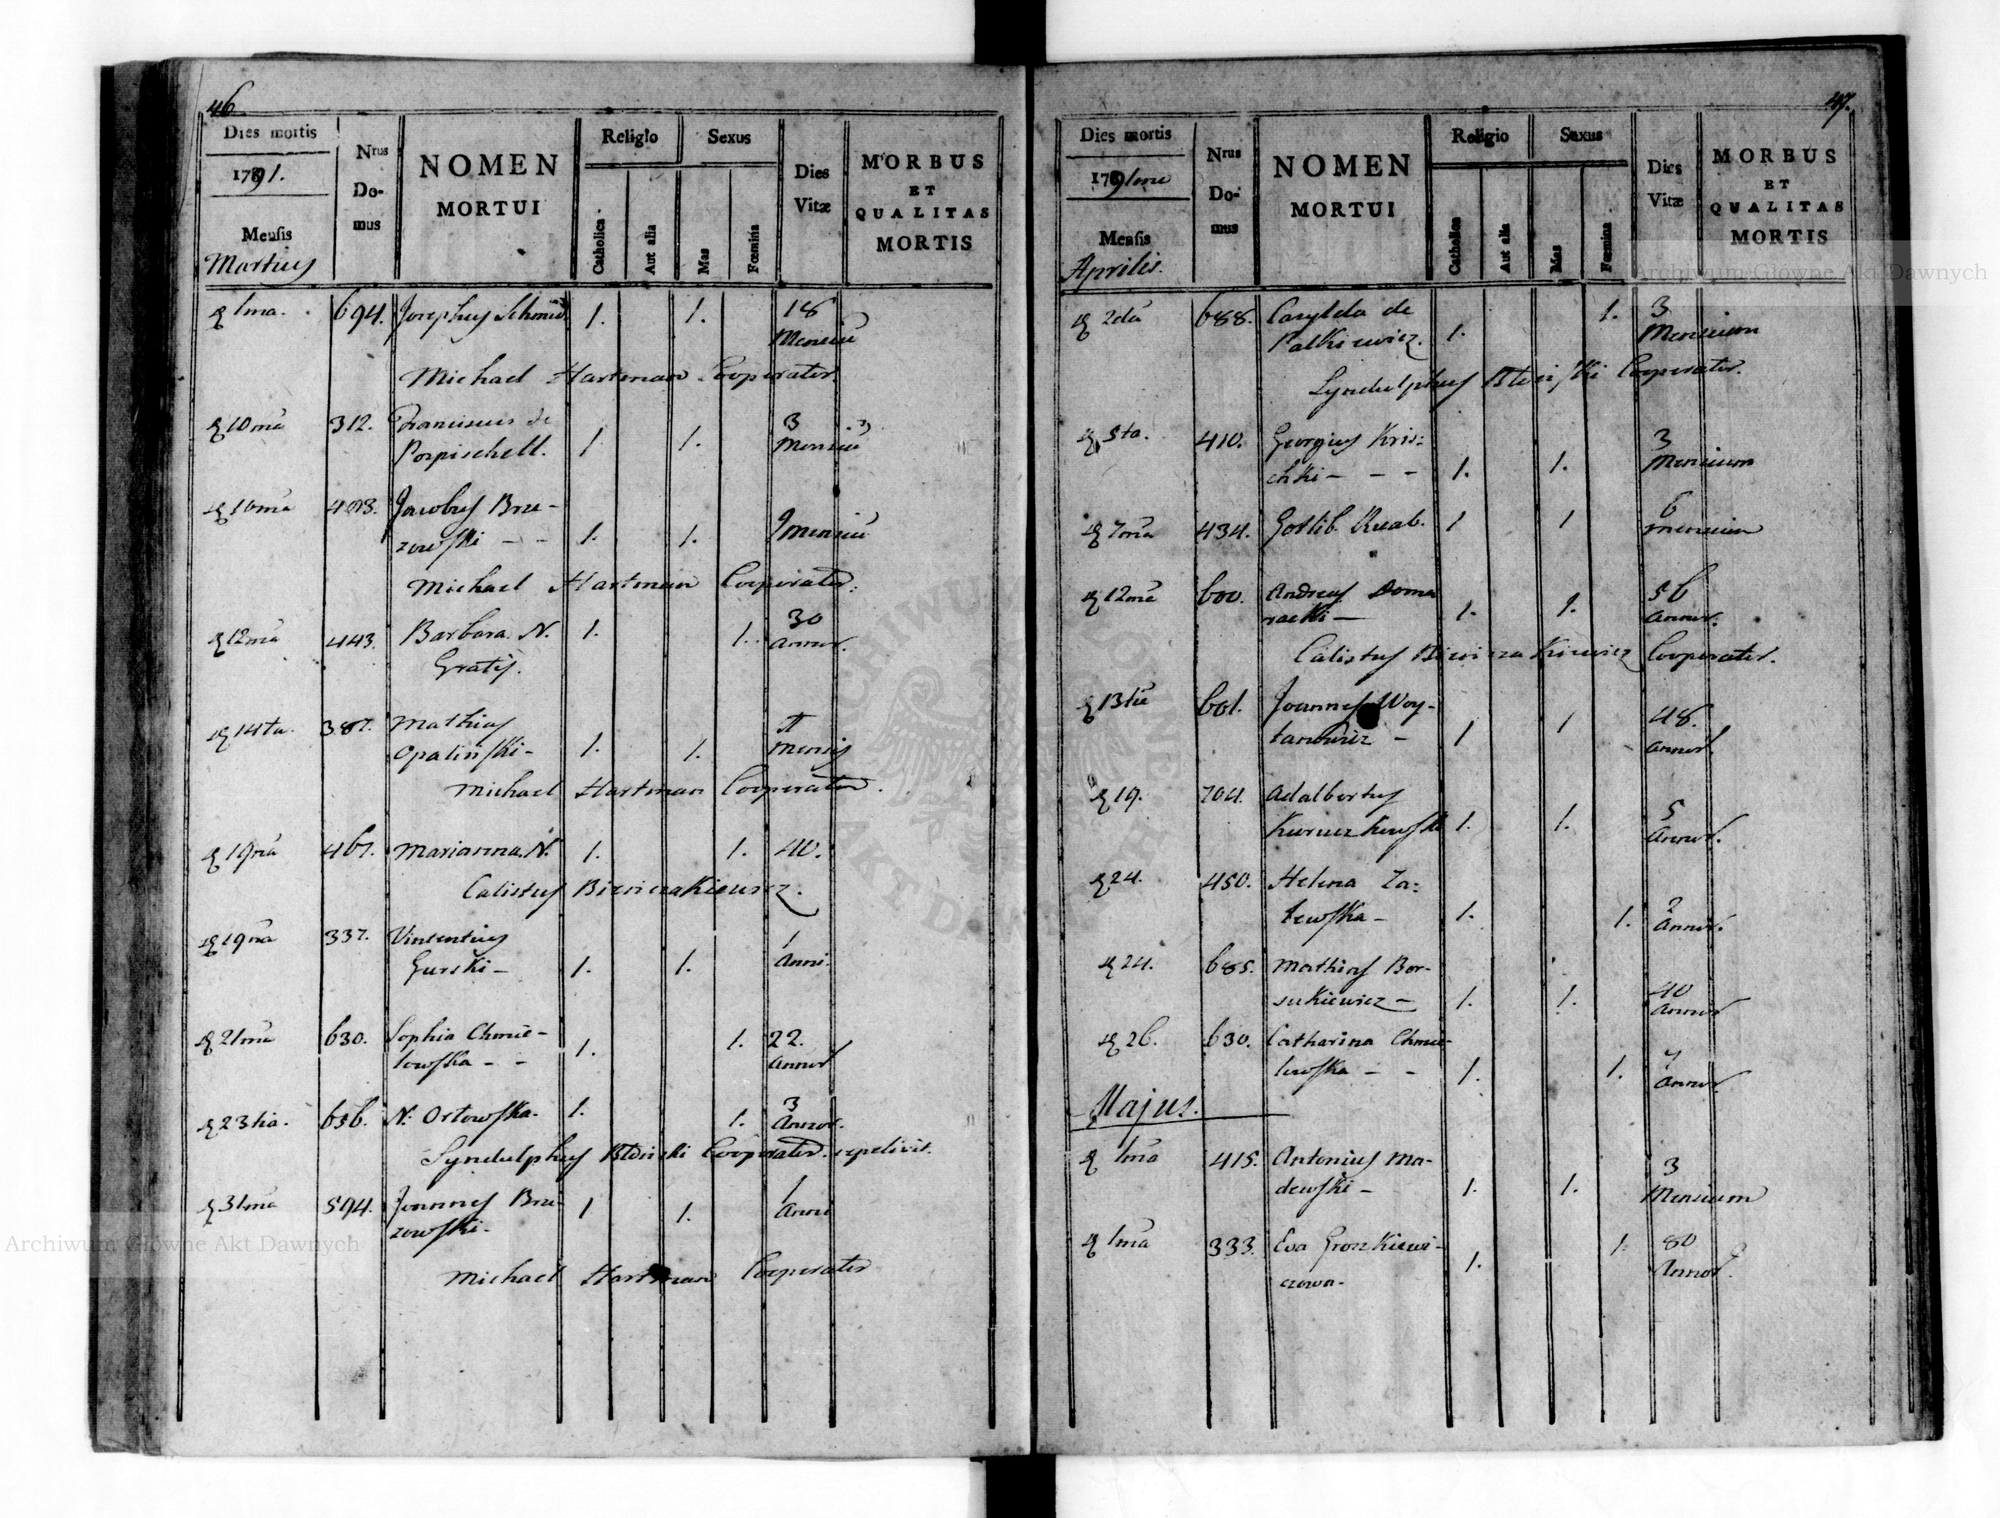 46
Dies mortis
1791.
Mensis
Martius
Nrus
Do-
mus
NOMEN
MORTUI
Religio
Catholica
Aut alia
Sexus
Mas
Fœmina
Dies
Vitæ
MORBUS
ET
QUALITAS
MORTIS
1ma. 694. Josephus Schmid 1. 1. 18
Mensiu
Michael Hartman Cooperator.
10ma 312. Franciscus de 3
Porpischell. 1 1. Mensiu
16ma Jacobus Brze-
zowski - - 1. 1. mensiu
Michael Hartman Cooperator.
12ma 443. Barbara. N. 1. 1. 30
annor.
Gratis.
14ta. 387. Mathias
Opalinski - 1. 1. mensis
Michael Hartman Cooperator.
19na 467. Marianna. N. 1. 1. 40.
Calistus
19na 337. Vintentius 1
Gurski - 1. 1. Anni.
21ma 630. Sophia Chmie- 1. 1. 22.
lowska - - annor
23tia. 656. N. Ortowska. 1. 1. 3
Annor.
Syndulphus Cooperator. sepelivit.
31ma 594. Joannes Brze- 1 1. 1
zowski. Anni
Michael Hartman Cooperator
47.
Dies mortis
1791mi
Mensis
Aprilis.
Nrus
Do-
mus
NOMEN
MORTUI
Religio
Catholica
Aut alia
Sexus
Mas
Fœmina
Dies
Vitæ
MORBUS
ET
QUALITAS
MORTIS
2da 688. de 1. 3
Palkiewicz. 1. Mensium
Syndulphus Cooperator.
5ta. 410. Georgius Kris: 3
chki - - - 1. 1. Mensium
7ma 434. Gotlib 1 1 6
mensium
12ma 600. Andreas Doma 56
racki - 1. 1. Annor.
Calistus Cooperator.
13tia 601. Joannes Woy- 48.
tanowicz - 1 1 annor.
19. 704. Adalbertus 5
1. 1. Annor.
24. 450. Helena Za: 2
lewska - 1. 1. Annor.
24. 685. Mathias Bor- 40
sukiewicz - 1. 1. Annor
26. 630. Catharina Chmie-
lewska - - 1. 1. Annor
Majus.
1ma 415. Antonius Ma- 3
dewski - 1. 1. Mensium
1ma 333. Eva Groszkiewi- 1. 1. 80
czowa. Annor.
Archiwum Główne Akt Dawnych
Archiwum Główne Akt Dawnych
ARCHIWUM GŁÓWNE AKT DAWNYCH